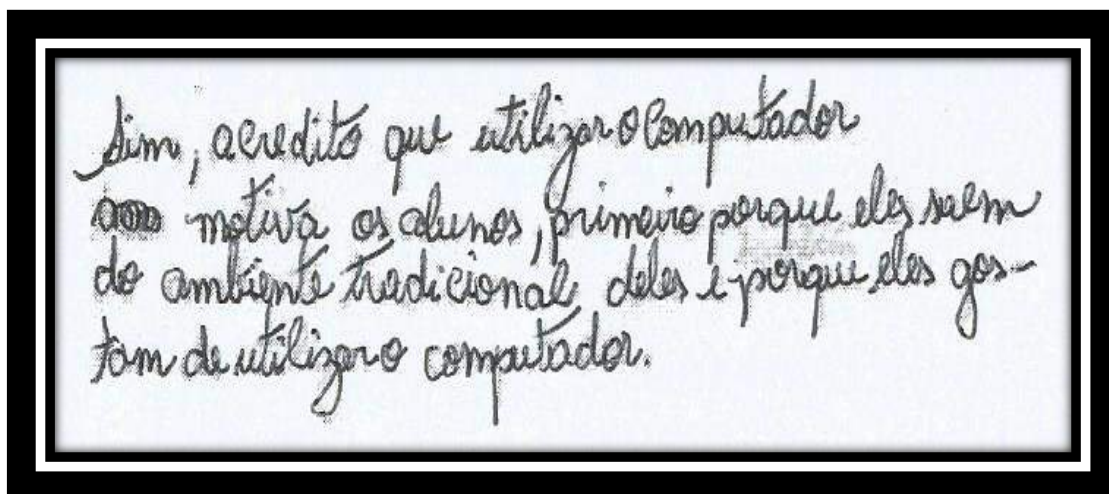 Sim, acredito que utilizar o computador
motiva os alunos, primeiro porque eles saem
do ambiente tradicional deles e porque eles gos-
tam de utilizar o computador.